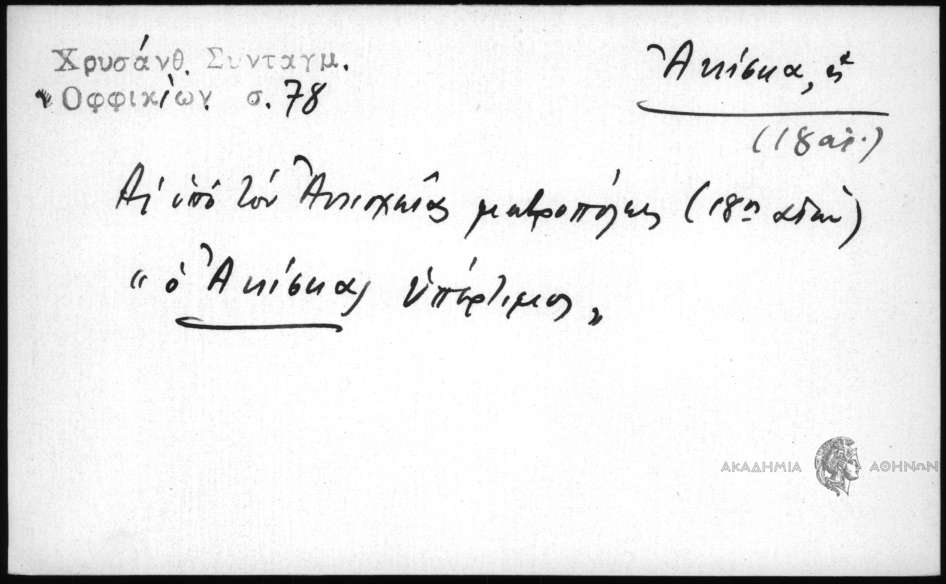 Χρυσάνθ. Συνταγμ.
Ὀφφικίων. σ. 78
Ἀκίσκα, ἡ
(18 αἰ.)
Αἱ ὑπὸ τὸν Ἀντιοχείας μητροπόλεις (18η αἰών)
"ὁ Ἀκίσκας ὑπέρτιμος"
ΑΚΑΔΗΜΙΑ ΑΘΗΝΩΝ